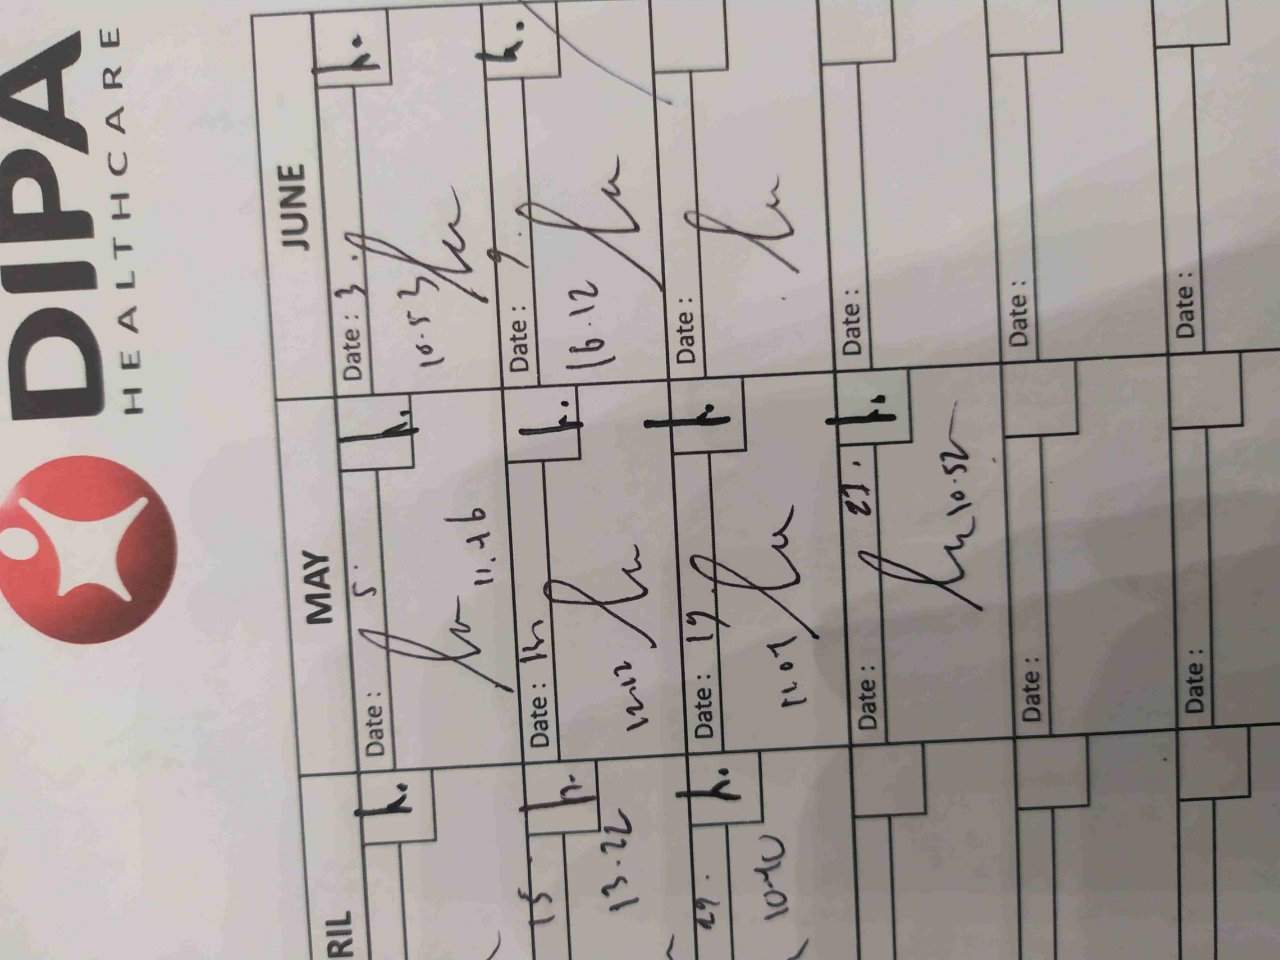 DIPA
HEALTHCARE
RIL
MAY
JUNE
Date : 5.
11.46
Date : 3.
10.53
15
13.22
Date :
Date : 9.
16.12
29.
10.40
Date : 19
11.07
Date :
Date : 27.
10.52
Date :
Date :
Date :
Date :
Date :